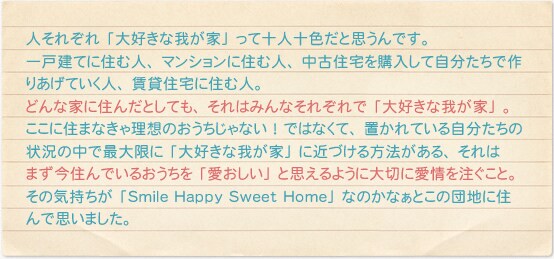 人それぞれ「大好きな我が家」って十人十色だと思うんです。
一戸建てに住む人、マンションに住む人、中古住宅を購入して自分たちで作
りあげていく人、賃貸住宅に住む人。
どんな家に住んだとしても、それはみんなそれぞれで「大好きな我が家」。
ここに住まなきゃ理想のおうちじゃない！ではなくて、置かれている自分たちの
状況の中で最大限に「大好きな我が家」に近づける方法がある、それは
まず今住んでいるおうちを「愛おしい」と思えるように大切に愛情を注ぐこと。
その気持ちが「Smile Happy Sweet Home」なのかなぁとこの団地に住
んで思いました。